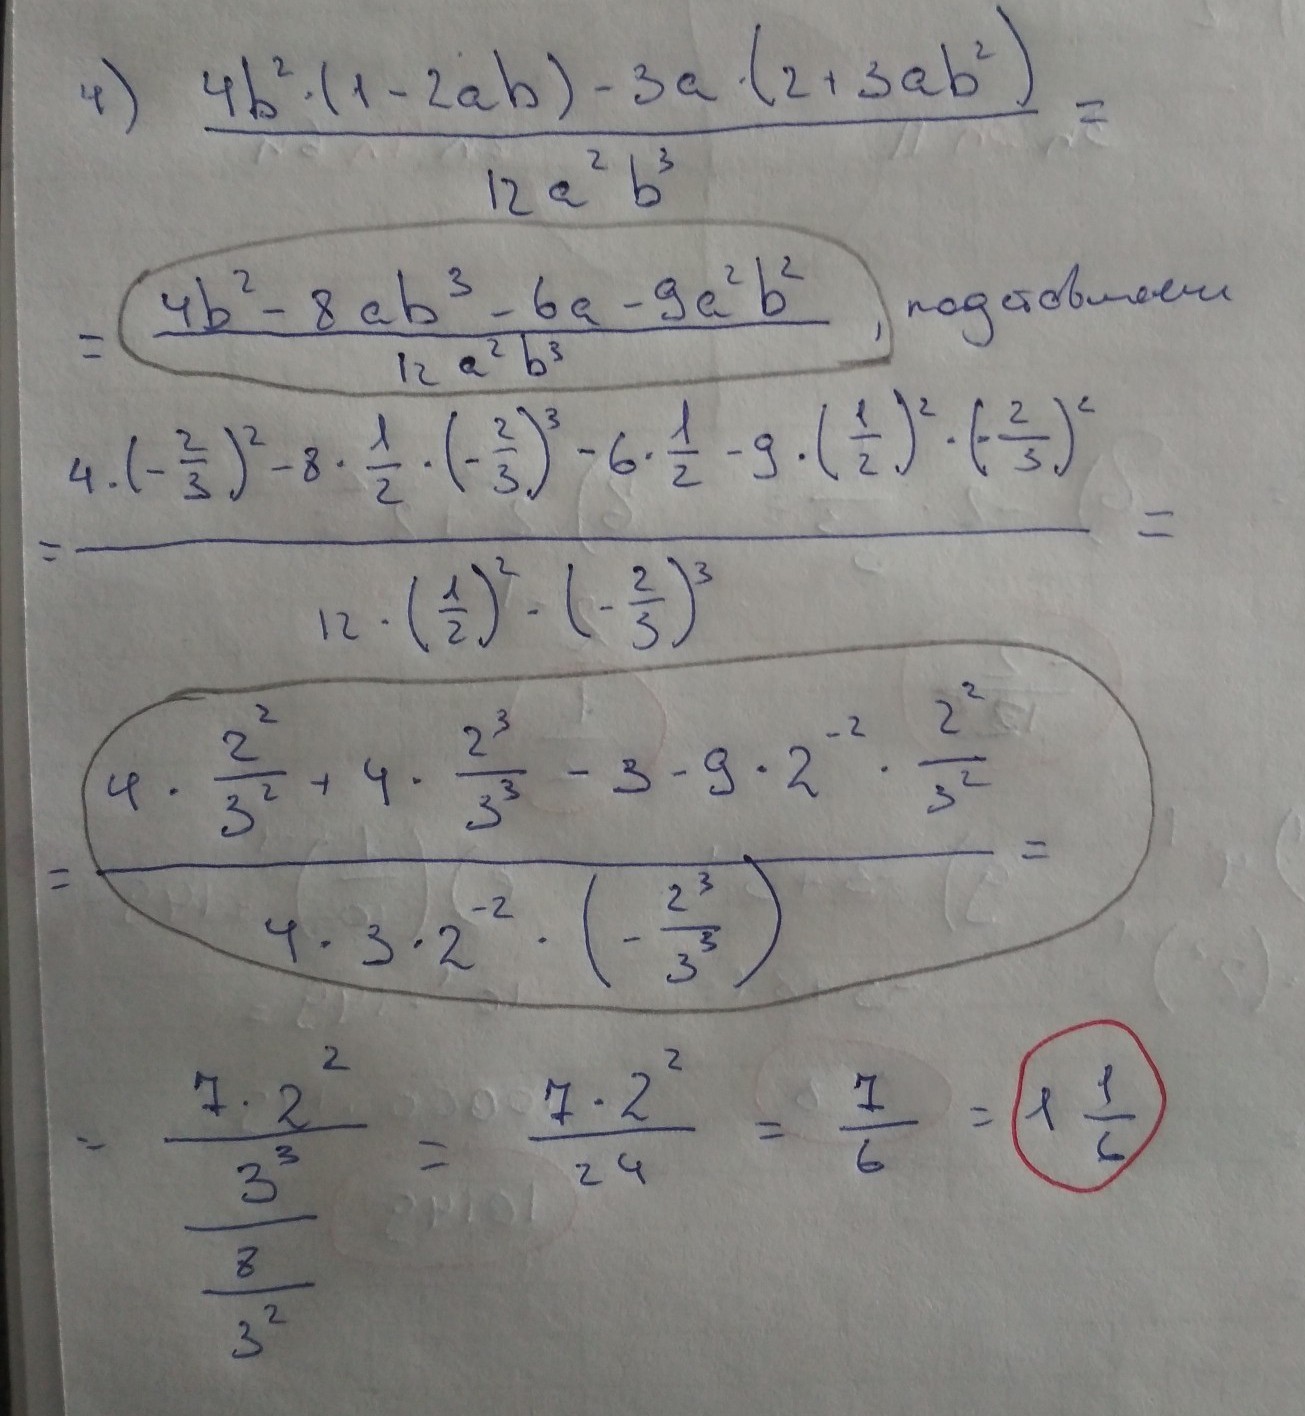 4) (4b²·(1-2ab)-3a·(2+3ab²))/(12a²b³) =
= (4b²-8ab³-6a-9a²b²)/(12a²b³), подставляем
= (4·(-2/3)²-8·1/2·(-2/3)³-6·1/2-9·(1/2)²·(-2/3)²)/(12·(1/2)²·(-2/3)³) =
= (4·2²/3²+4·2³/3³-3-9·2⁻²·2²/3²)/(4·3·2⁻²·(-2³/3³)) =
= 7·2²/3³/8/3² = 7·2²/24 = 7/6 = 1 1/6